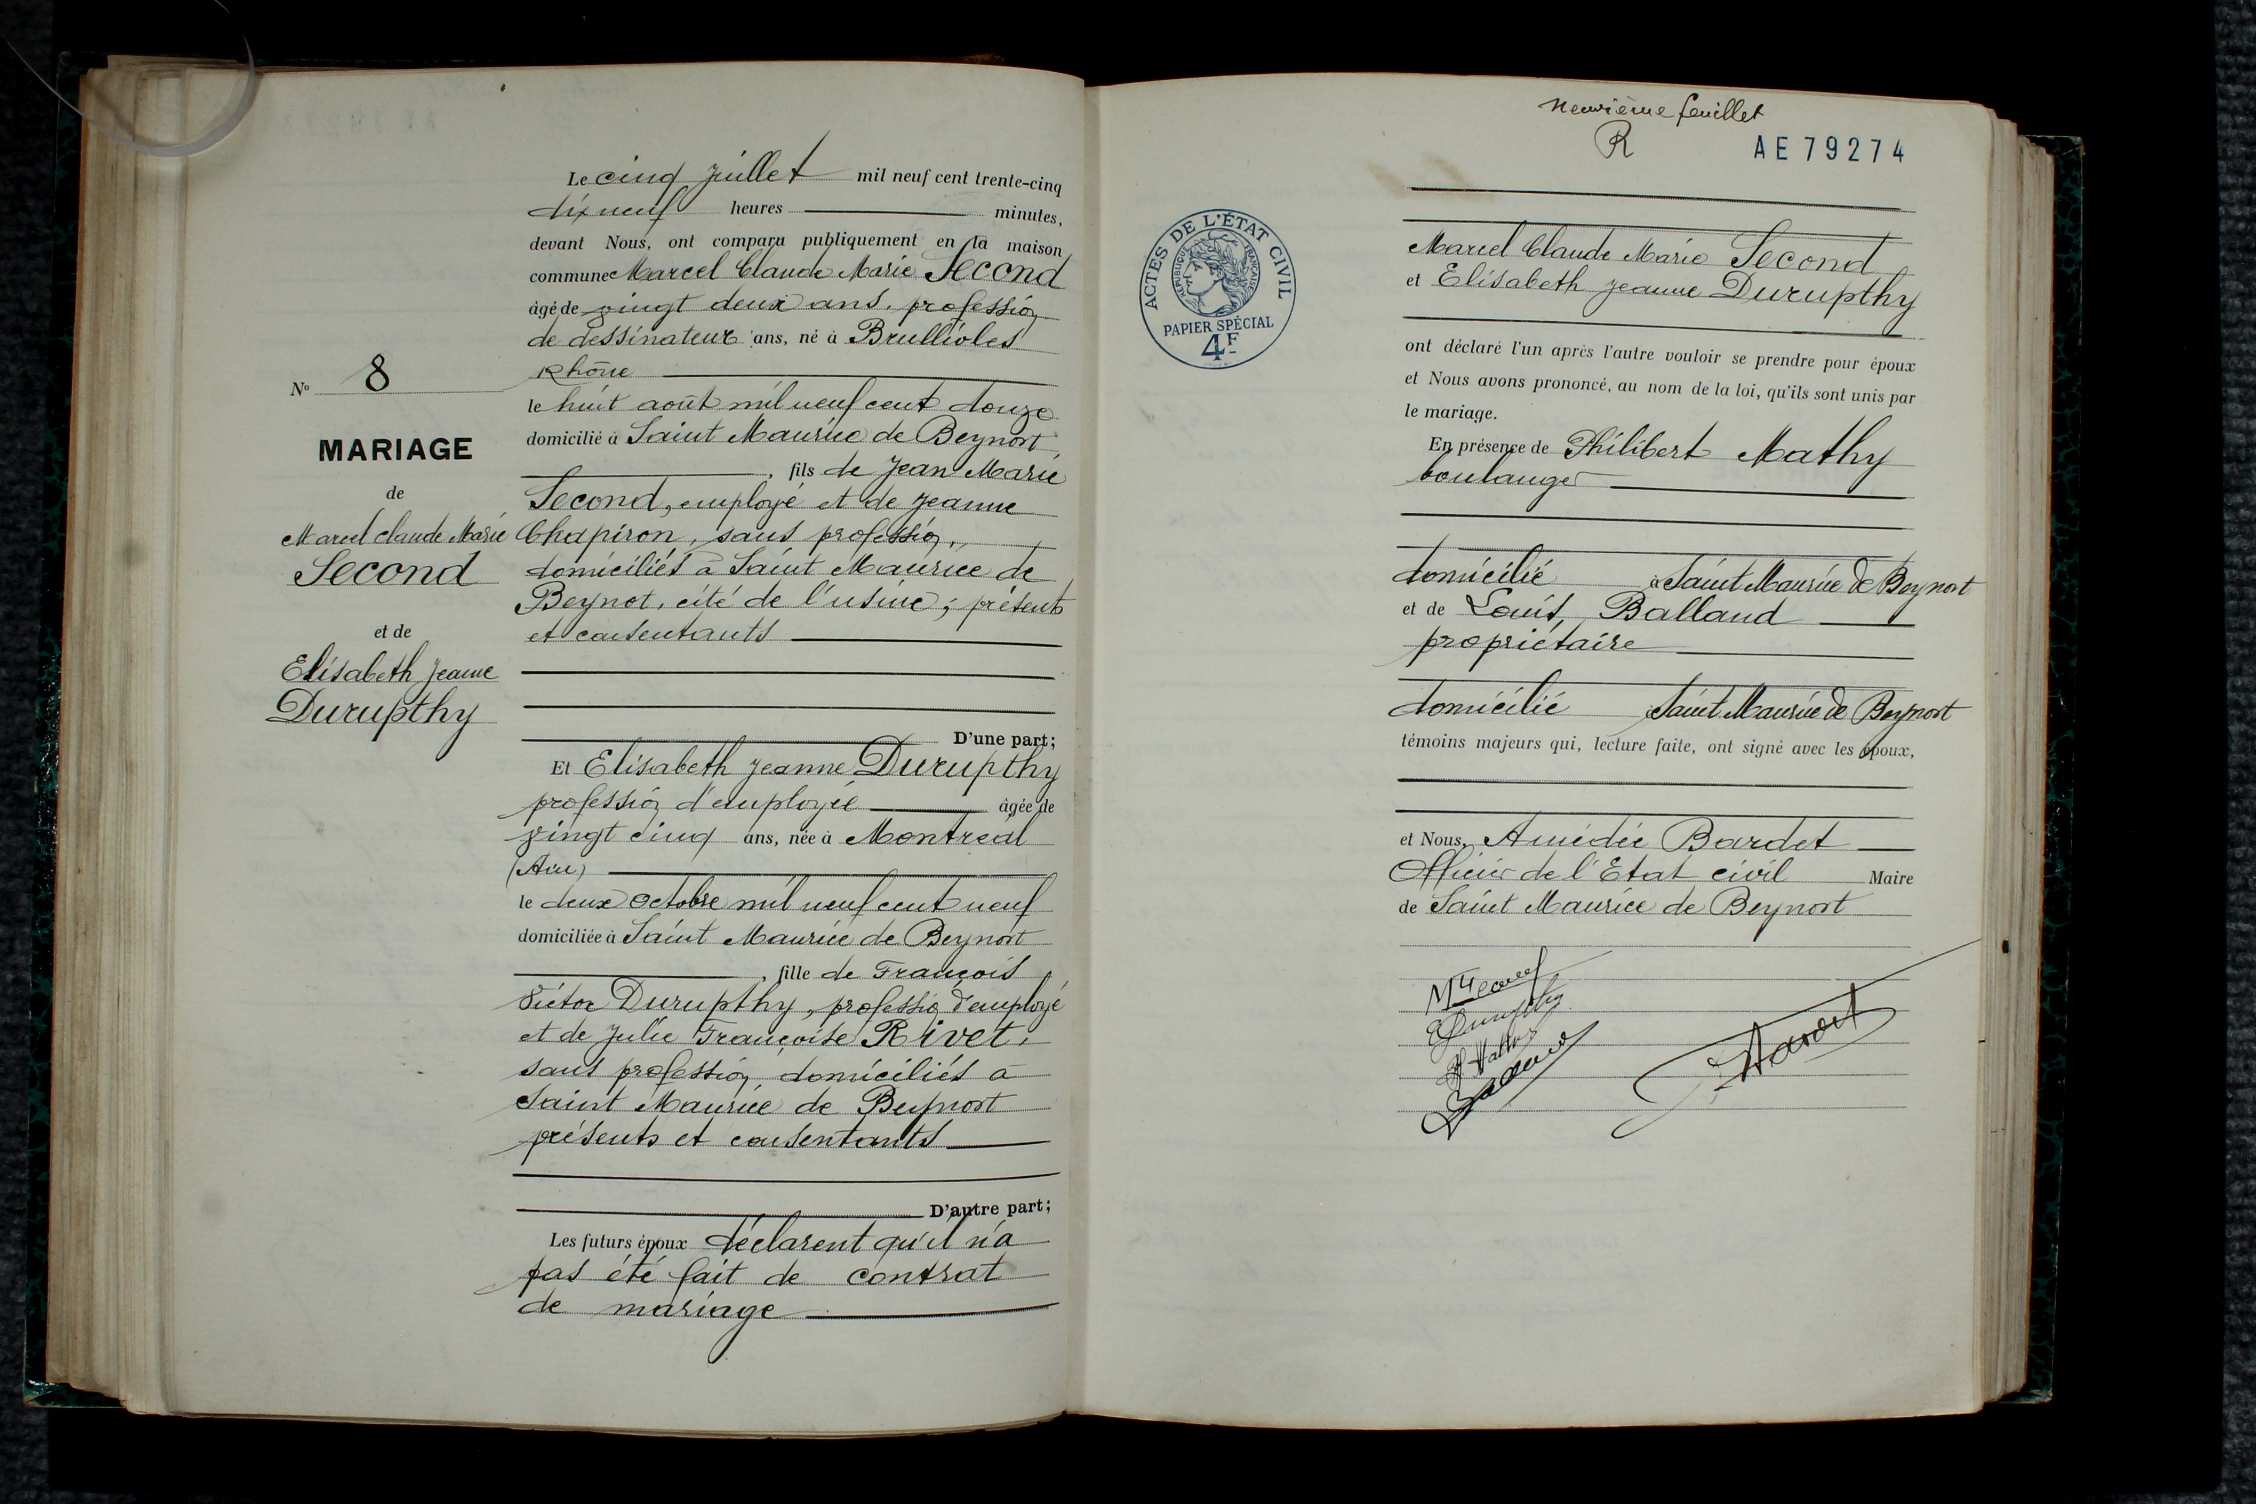 Le cinq juillet mil neuf cent trente-cinq
dix neuf heures minutes,
devant Nous, ont comparu publiquement en la maison
commune Marcel Claude Marie Second
âgé de vingt deux ans, profession
de dessinateur ans, né à Brullioles
Rhône
le huit août mil neuf cent douze
domicilié à Saint Maurice de Beynost
, fils de Jean Marie
Second, employé et de Jeanne
Chapiron, sans profession,
domiciliés à Saint Maurice de
Beynot, cité de l'usine ; présents
et consentants
D'une part;
Et Elisabeth Jeanne Durupthy
profession d'employée âgée de
vingt cinq ans, née à Montreal
(Ain)
le deux octobre mil neuf cent neuf
domiciliée à Saint Maurice de Beynost
, fille de François
Victor Durupthy, profession d'employé
et de Julie Françoise Rivet,
sans profession, domiciliés à
Saint Maurice de Beynost
présents et consentants
D'autre part;
Les futurs époux déclarent qu'il n'a
pas été fait de contrat
de mariage
N° 8
MARIAGE
de
Marcel Claude Marie
Second
et de
Elisabeth Jeanne
Durupthy
neuvième feuillet
R
AE 79274
ACTES DE L'ÉTAT CIVIL
RÉPUBLIQUE FRANÇAISE
PAPIER SPÉCIAL
4F
Marcel Claude Marie Second
et Elisabeth Jeanne Durupthy
ont déclaré l'un après l'autre vouloir se prendre pour époux
et Nous avons prononcé, au nom de la loi, qu'ils sont unis par
le mariage.
En présence de Philibert Mathy
boulanger
domicilié à Saint Maurice de Beynost
et de Louis, Balland
propriétaire
domicilié Saint Maurice de Beynost
témoins majeurs qui, lecture faite, ont signé avec les époux,
et Nous, Amédée Bardet
Officier de l'Etat civil Maire
de Saint Maurice de Beynost